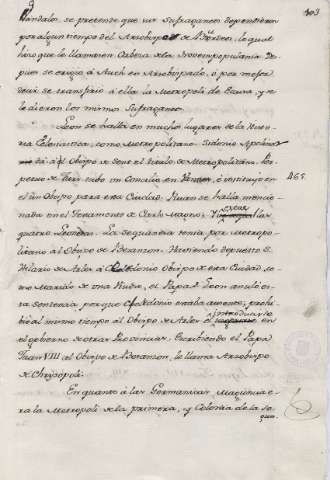 403
dándalos, se pretende que sus Sufragáneos dependieron
por algun tiempo del Arzobispo de Bordeos, lo qual
hizo que le llamasen Cabeza de la Novempopulania. Des
pues se erigió á Auch en Arzobispado, o por mejor
decir se transfirió á ella la Metropoli de Eauza, y se
le dieron los mismos Sufraganeos.
Leon se halla en muchos lugares de la Histo
ria Eclesiastica, como Metropolitano. Sidonio Apolinar
dá á el Obispo de Sens el titulo de Metropolitano. Per
petuo de Tours tubo un Concilio en 465.
el un Obispo para esta Ciudad. Ruan se halla mencio
nada en el Testamento de Carlo Magno,
quatro Leonesas. La Sequania tenia por Metropo
litano al Obispo de Besanzon. Haviendo depuesto S.
Hilario de Arles á Celidonio Obispo de esta Ciudad, co
mo Marido de una Viuda, el Papa S. Leon anuló es
ta sentencia, porque Celidonio estaba ausente, prohi
bió al mismo tiempo al Obispo de Arles el introducirse en
el gobierno de otras Provincias. Escribiendo el Papa
Juan VIII al Obispo de Besanzon, le llama Arzobispo
de Chrysopoli.
En quanto á las Germanias Maguncia e
ra la Metropoli de la primera, y Colonia de la Se
gun